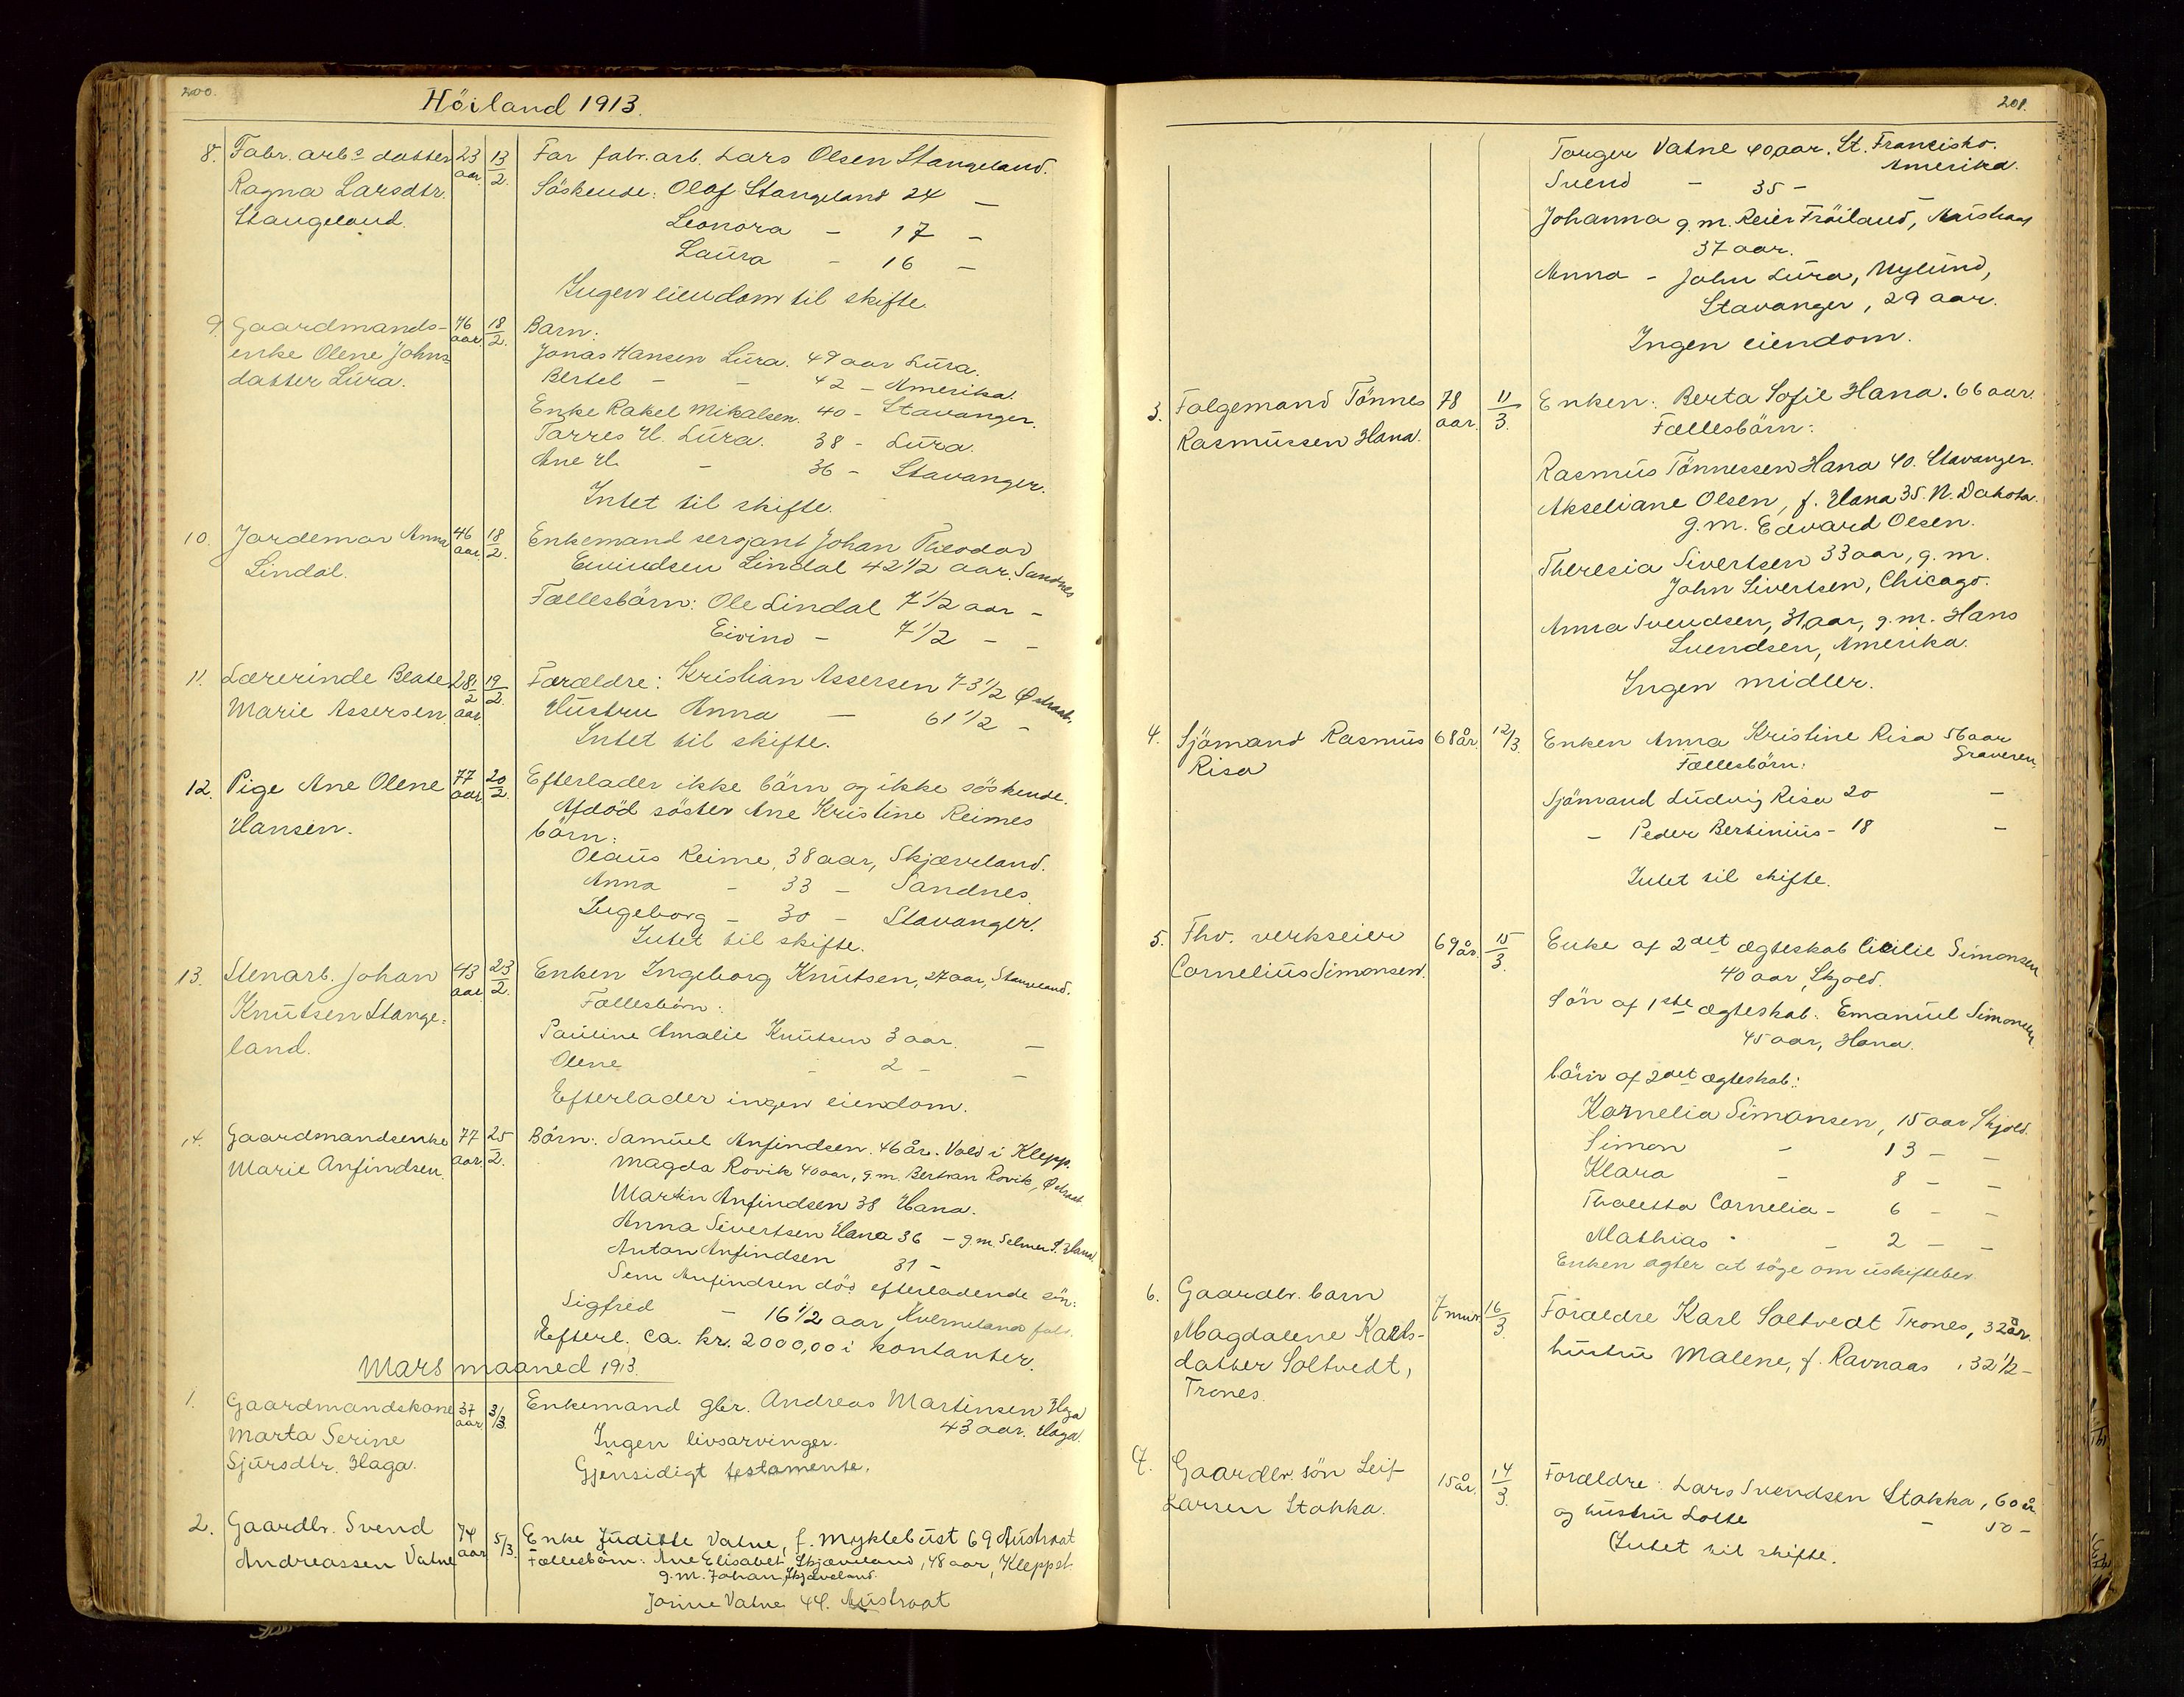 200.
Höiland 1913.
8. Fabr. arb.s datter 23 aar. 13/2. Far fabr. arb. Lars Olsen Stangeland.
Ragna Larsdtr. Söskende: Olaf Stangeland 24 –
Stangeland. Leonora – 17 –
Laura – 16 –
Ingen eiendom til skifte.
9. Gaardmands- 76 aar. 18/2. Barn:
enke Olene Johns= Jonas Hansen Lura. 49 aar Lura.
datter Lura. Bertel – – 42 – Amerika.
Enke Rakel Mikalsen. 40 – Stavanger.
Torres H. Lura. 38 – Lura.
Ane H. – 36 – Stavanger.
Intet til skifte.
10. Jordemor Anna 46 aar. 18/2. Enkemand sersjant Johan Theodor
Lindal. Eivindsen Lindal 42 1/2 aar, Sandnes
Fællesbörn: Ole Lindal 7 1/2 aar –
Eivind – 7 1/2 – –
11. Lærerinde Beate 28 1/2 aar. 19/2. Forældre: Kristian Assersen 73 1/2 Östraat.
Marie Assersen. Hustru Anna – 61 1/2 –
Intet til skifte.
12. Pige Ane Olene 77 aar. 20/2. Efterlader ikke börn og ikke söskende.
Hansen. Afdöd söster Ane Kristine Reimes
börn:
Olaus Reime, 38 aar, Skjæveland.
Anna – 33 – Sandnes.
Ingeborg – 30 – Stavanger.
Intet til skifte.
13. Stenarb. Johan 43 aar. 23/2. Enken Ingeborg Knutsen, 27 aar, Stangeland.
Knutsen Stange= Fællesbörn:
land. Pauline Amalie Knutsen 3 aar. –
Olene – 2 – –
Efterlader ingen eiendom.
14. Gaardmandsenke 77 aar. 25/2. Börn: Samuel Anfindsen. 46 år. Vold i Klepp.
Marie Anfindsen. Magda Rovik 40 aar, g.m. Bertran Rovik, Östraat
Martin Anfindsen 38 Hana.
Anna Sivertsen Hana 36 – g.m. Selmer S. Hana.
Anton Anfindsen 31 –
Sem Anfindsen död efterladende sön:
Sigfred – 16 1/2 aar Kverneland fabr.
Efterl. ca. kr. 2000,00 i kontanter.
Mars maaned 1913.
1. Gaardmandskone 37 aar. 3/3. Enkemand gbr. Andreas Martinsen Haga
Marta Serine 43 aar. Haga.
Sjursdtr. Haga. Ingen livsarvinger.
Gjensidigt testamente.
2. Gaardbr. Svend 74 aar 5/3. Enke Juditte Vatne, f. Myklebust 69 Austraat
Andreassen Vatne Fællesbörn: Ane Elisabet Skjæveland, 48 aar, Kleppst.
g.m. Johan Skjæveland.
Jorine Vatne 44. Austraat
201.
Torger Vatne 40 aar. St. Francisko.
Amerika.
Svend – 35 – –
Johanna g.m. Reier Fröiland, Austraat
37 aar.
Anna – John Lura, Nylund,
Stavanger, 29 aar.
Ingen eiendom.
3. Folgemand Tönnes 78 aar. 11/3. Enken: Berta Sofie Hana. 66 aar.
Rasmussen Hana. Fællesbörn:
Rasmus Tönnessen Hana 40. Stavanger.
Akseliane Olsen, f. Hana 35. N. Dakota.
g.m. Edvard Olsen.
Theresia Sivertsen 33 aar, g.m.
John Sivertsen, Chicago.
Anna Svendsen, 31 aar, g.m. Hans
Svendsen, Amerika.
Ingen midler.
4. Sjömand Rasmus 68 år. 12/3. Enken Anna Kristine Risa 56 aar
Risa Graveren.
Fællesbörn:
Sjömand Ludvig Risa 20 –
– Peder Bertinius – 18 –
Intet til skifte.
5. Fhv. verkseier 69 år. 15/3. Enke af 2det ægteskab Cicilie Simonsen
Cornelius Simonsen. 40 aar, Skjold.
Sön af 1ste ægteskab. Emanuel Simonsen
45 aar, Hana.
börn af 2det ægteskab:
Kornelia Simonsen, 15 aar Skjold.
Simon – 13 – –
Klara – 8 – –
Thaletta Cornelia – 6 – –
Mathias – 2 – –
Enken agter at söge om uskiftebev.
6. Gaardbr. barn 7 mnr. 16/3. Forældre Karl Soltvedt Trones, 32 år.
Magdalene Karls- hustru Malene, f. Ravnaas, 32 1/2 –
datter Soltvedt,
Trones.
7. Gaardbr. sön Leif 15 år. 14/3. Forældre: Lars Svendsen Stokka, 60 år
Larsen Stokka. og hustru Lotte – 50 –
Intet til skifte.